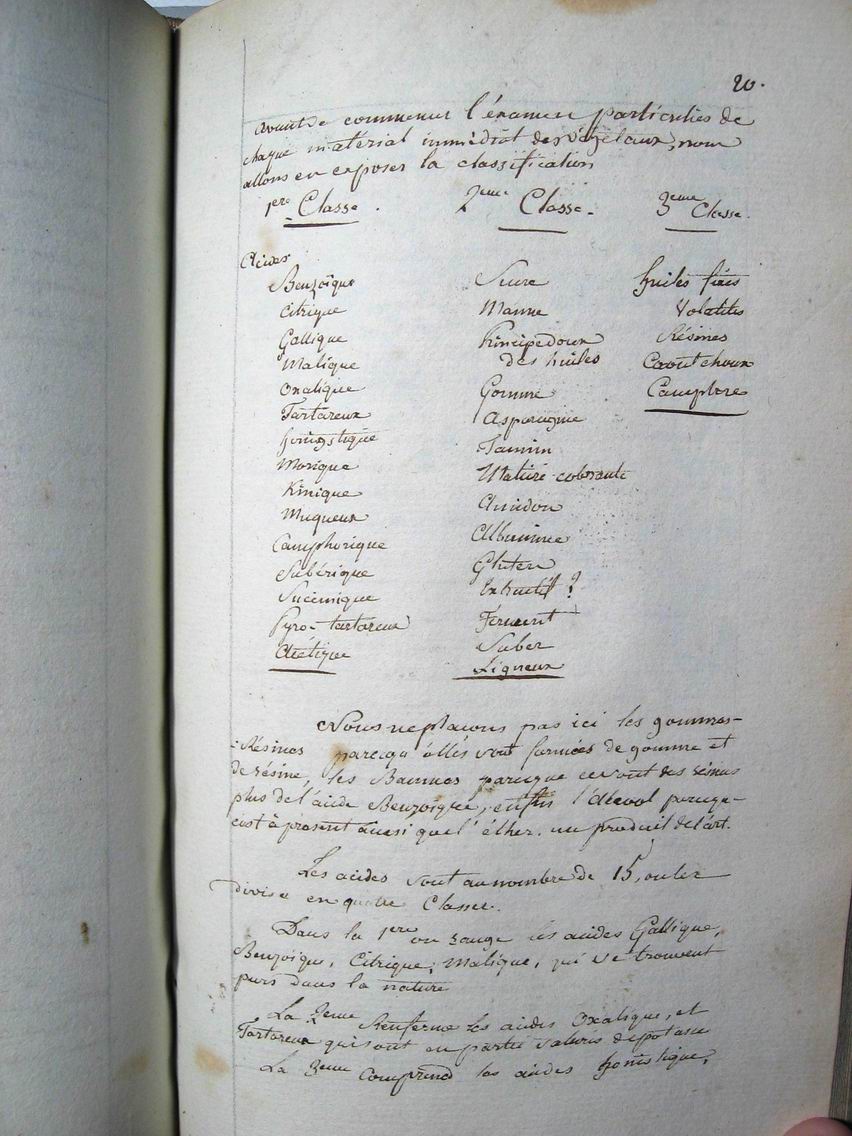 20.
Avant de commencer l'éxamen particulier de
chaque matérial immédiat des végétaux, nous
allons en exposer la classification
1ere Classe. 2eme Classe. 3eme Classe.
Acides
Benzoïque Sucre huiles fixes
Citrique Manne Volatiles
Gallique Principe doux Résines
Malique des huiles Caoutchoux
Oxalique Gomme Camphre
Tartareux Asparagine
honigstique Tannin
Morique Matière colorante
Kinique Amidon
Muqueux Albumine
Camphorique Gluten
Subérique Extractif ?
Succinique Ferment
Pyro-tartareux Suber
Acétique Ligneux
Nous ne plaçons pas ici les gommes-
-Résines parcequ'elles sont formées de gomme et
de résine, les Baumes parceque ce sont des résines
plus de l'acide Benzoïque, enfin l'alcool parceque
c'est à présent aussi que l'éther. un produit de l'art.
Les acides sont au nombre de 15, on les
divise en quatre Classes.
Dans la 1ere on range les acides Gallique,
Benzoïque, Citrique, Malique, qui se trouvent
purs dans la nature
La 2eme Renferme les acides Oxalique, et
Tartareux qui sont en partie saturés de potasse
La 3eme Comprend les acides honistique,